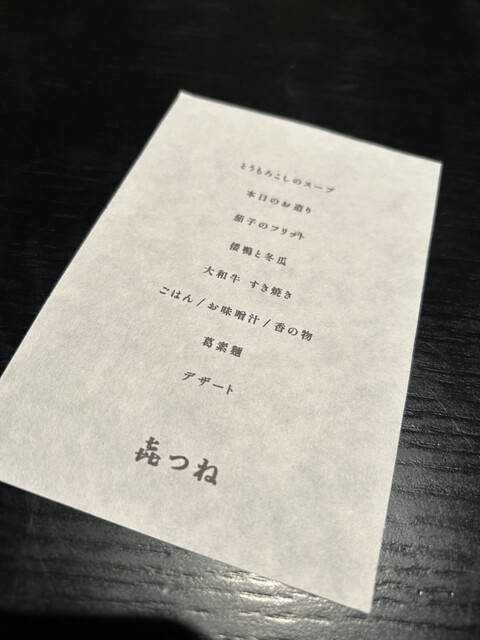 とうもろこしのスープ
本日のお造り
茄子のフリット
倭鴨と冬瓜
大和牛 すき焼き
ごはん/お味噌汁/香の物
葛素麺
デザート
㐂つね